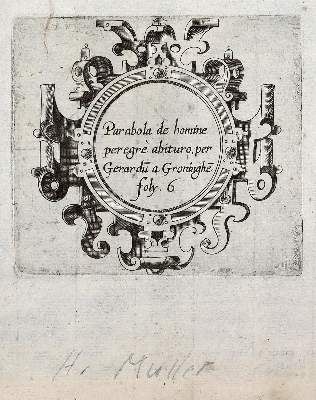 Parabola de homine
peregrè abituro, per
Gerardū a Groninghē
foly. 6
H. Muller